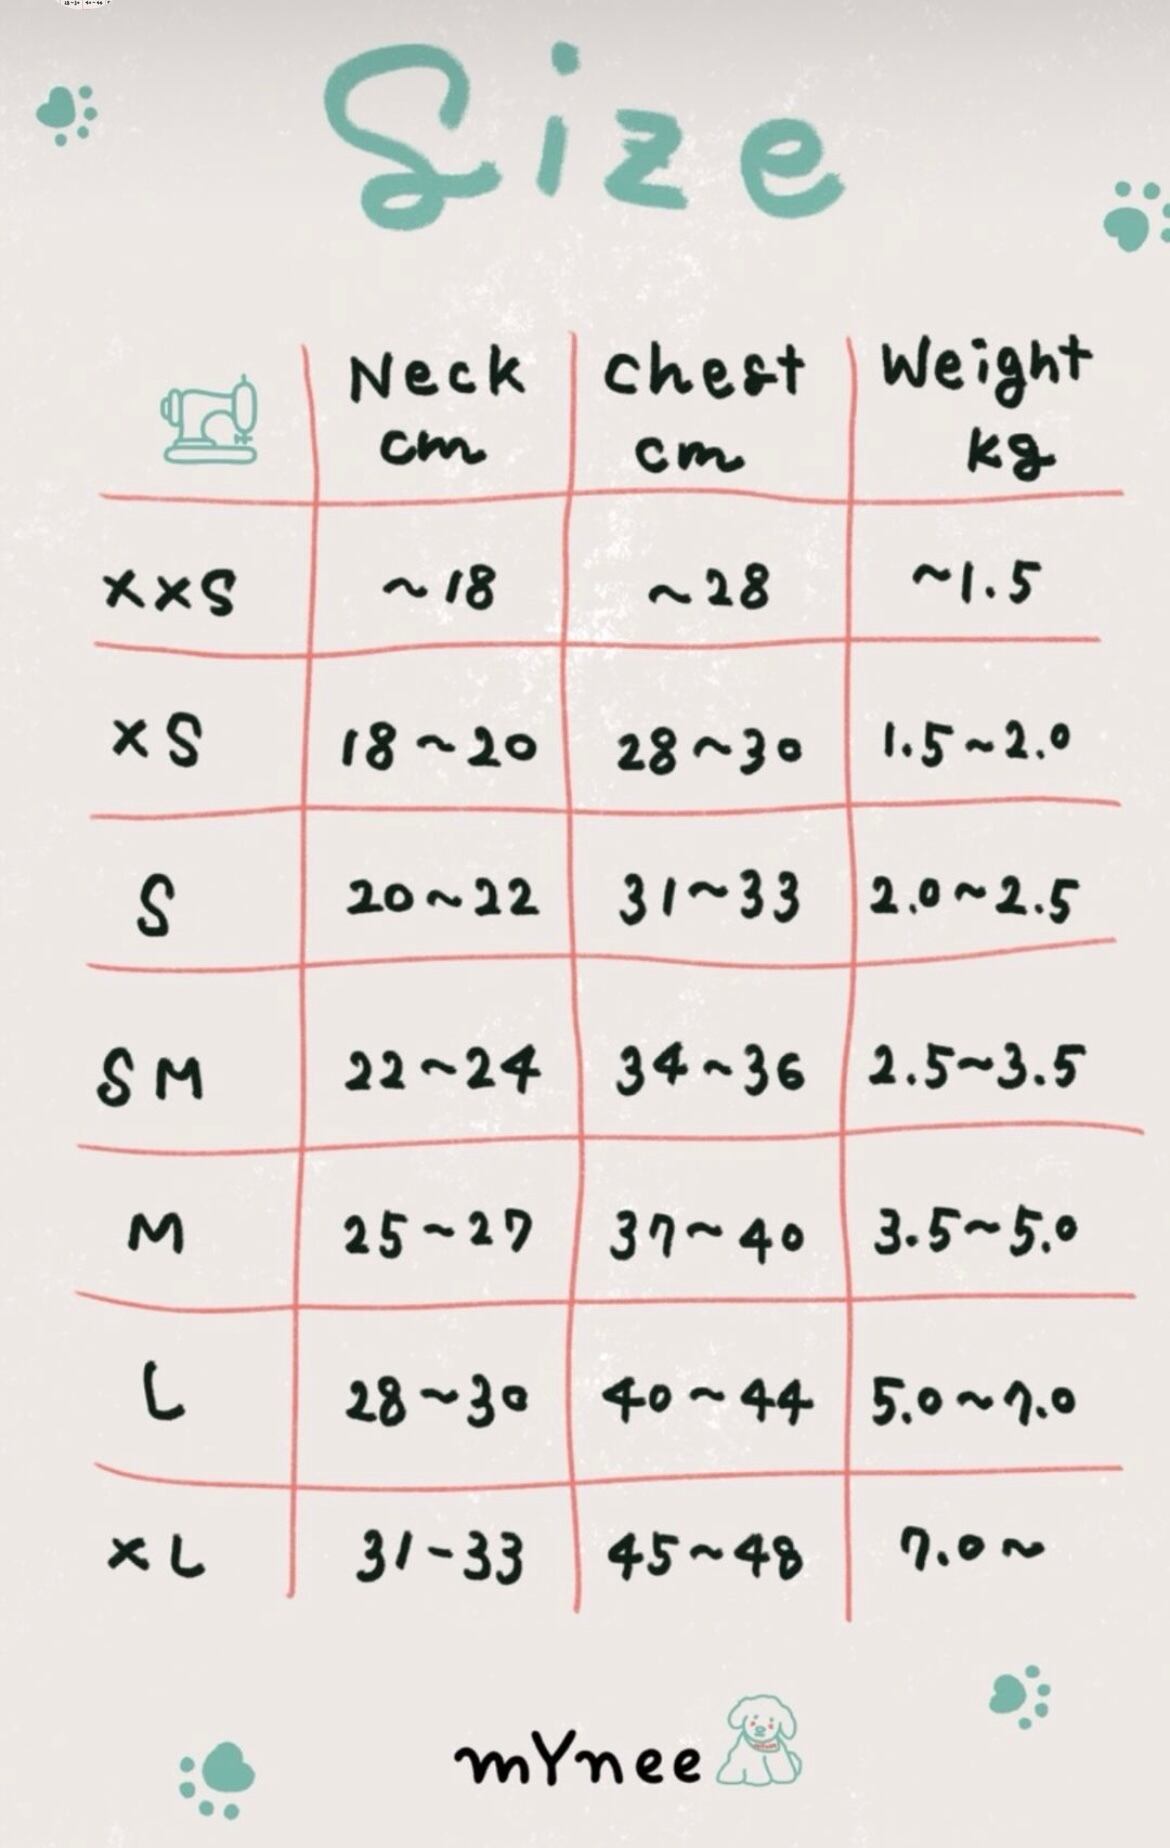 Size
Neck cm Chest cm Weight kg
XXS ~18 ~28 ~1.5
XS 18~20 28~30 1.5~2.0
S 20~22 31~33 2.0~2.5
SM 22~24 34~36 2.5~3.5
M 25~27 37~40 3.5~5.0
L 28~30 40~44 5.0~7.0
XL 31-33 45~48 7.0~
mYnee